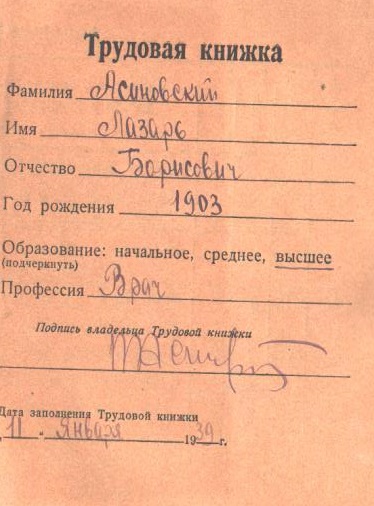 Трудовая книжка
Фамилия Асиновский
Имя Лазарь
Отчество Борисович
Год рождения 1903
Образование: начальное, среднее, высшее
(подчеркнуть)
Профессия Врач
Подпись владельца Трудовой книжки
Дата заполнения Трудовой книжки
"11" Января 1939 г.